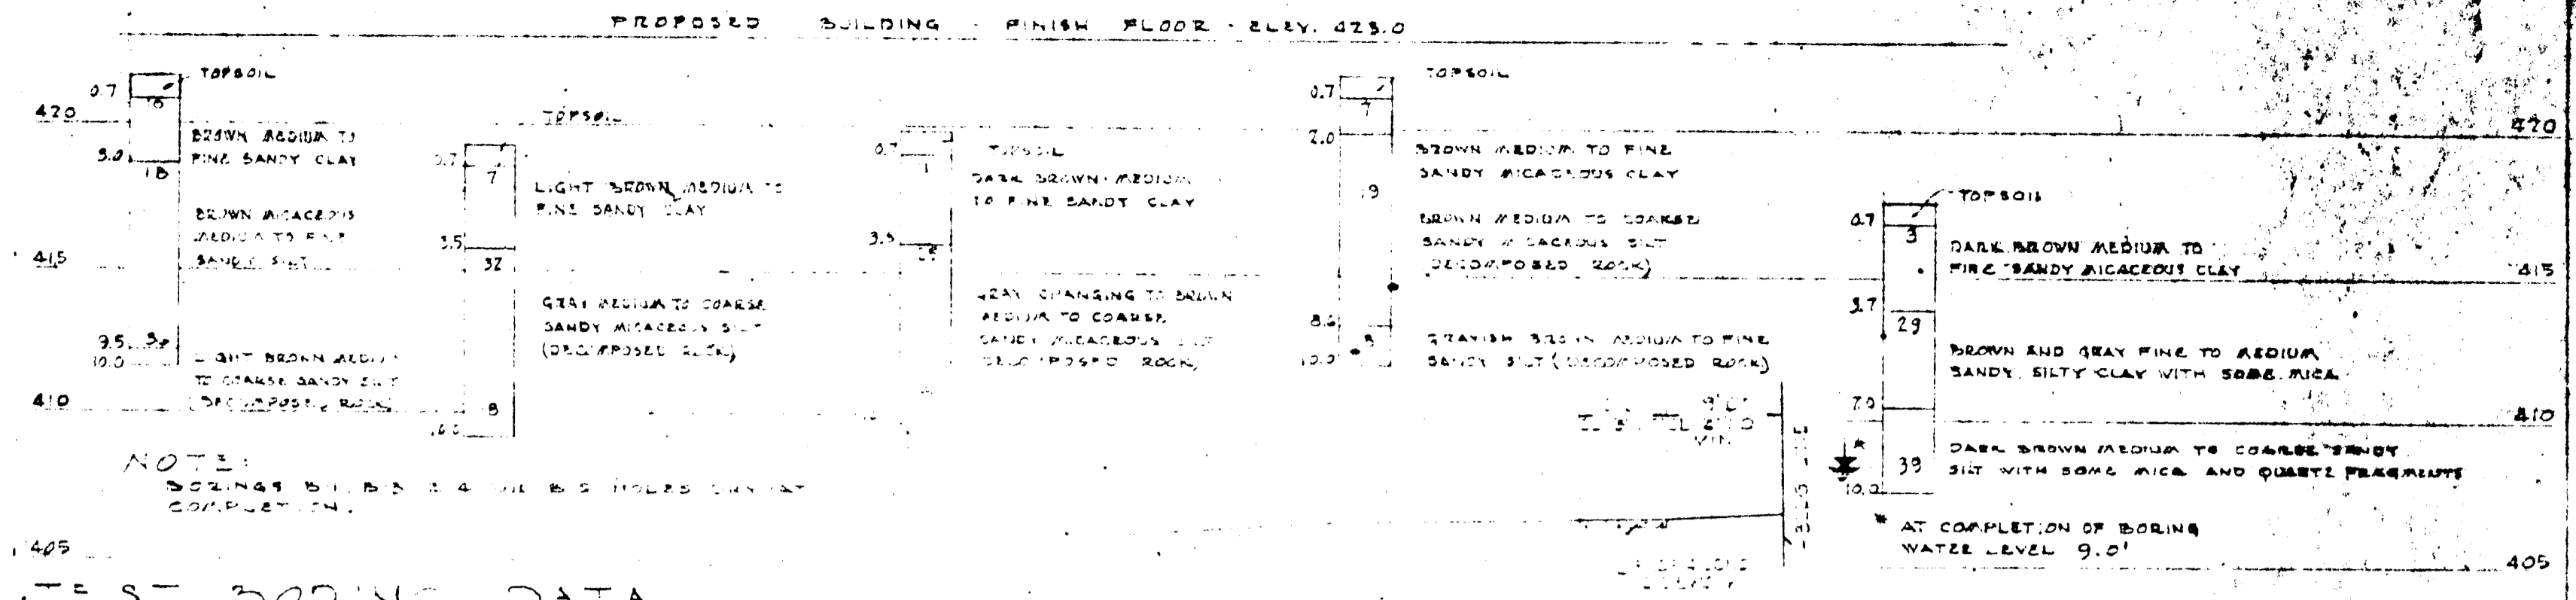 PROPOSED BUILDING - FINISH FLOOR - ELEV. 423.0
TOPSOIL
0.7
10
420
BROWN MEDIUM TO
FINE SANDY CLAY
3.0
18
BROWN MICACEOUS
MEDIUM TO FINE
SANDY SILT
415
9.5
10.0
LIGHT BROWN MEDIUM
TO COARSE SANDY SILT
(DECOMPOSED ROCK)
410
TOPSOIL
0.7
7
LIGHT BROWN MEDIUM TO
FINE SANDY CLAY
3.5
32
GRAY MEDIUM TO COARSE
SANDY MICACEOUS SILT
(DECOMPOSED ROCK)
0.7
TOPSOIL
DARK BROWN MEDIUM
TO FINE SANDY CLAY
3.5
GRAY CHANGING TO BROWN
MEDIUM TO COARSE
SANDY MICACEOUS SILT
(DECOMPOSED ROCK)
TOPSOIL
0.7
7
2.0
BROWN MEDIUM TO FINE
SANDY MICACEOUS CLAY
19
BROWN MEDIUM TO COARSE
SANDY MICACEOUS SILT
(DECOMPOSED ROCK)
8.6
10.0
GRAYISH BROWN MEDIUM TO FINE
SANDY SILT (DECOMPOSED ROCK)
9'0"
MIN
420
TOPSOIL
0.7
3
DARK BROWN MEDIUM TO
FINE SANDY MICACEOUS CLAY
415
3.7
29
BROWN AND GRAY FINE TO MEDIUM
SANDY SILTY CLAY WITH SOME MICA
7.0
410
39
DARK BROWN MEDIUM TO COARSE SANDY
SILT WITH SOME MICA AND QUARTZ FRAGMENTS
*
10.0
* AT COMPLETION OF BORING
WATER LEVEL 9.0'
405
NOTE:
BORINGS B-1, B-3 & 4 B 5 HOLES DRY AT
COMPLETION.
405
TEST BORING DATA